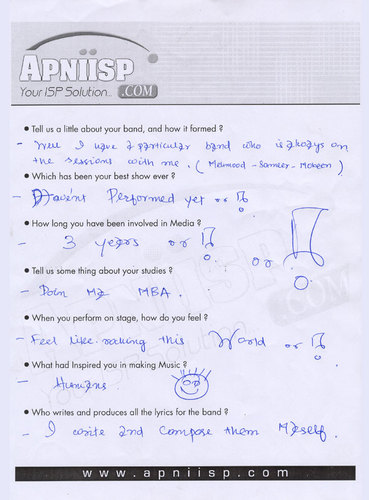 APNIISP
Your ISP Solution... .COM
• Tell us a little about your band, and how it formed ?
- Well I have a particular band who is always on
the sessions with me. ( Mehmood - Sameer - Mohsen )
• Which has been your best show ever ?
- Haven't Performed yet or !
• How long you have been involved in Media ?
- 3 years or !
or !
• Tell us some thing about your studies ?
- Doin My MBA.
• When you perform on stage, how do you feel ?
- Feel like rocking this World or !
• What had Inspired you in making Music ?
- Humans.
• Who writes and produces all the lyrics for the band ?
- I write and compose them Myself.
www.apniisp.com